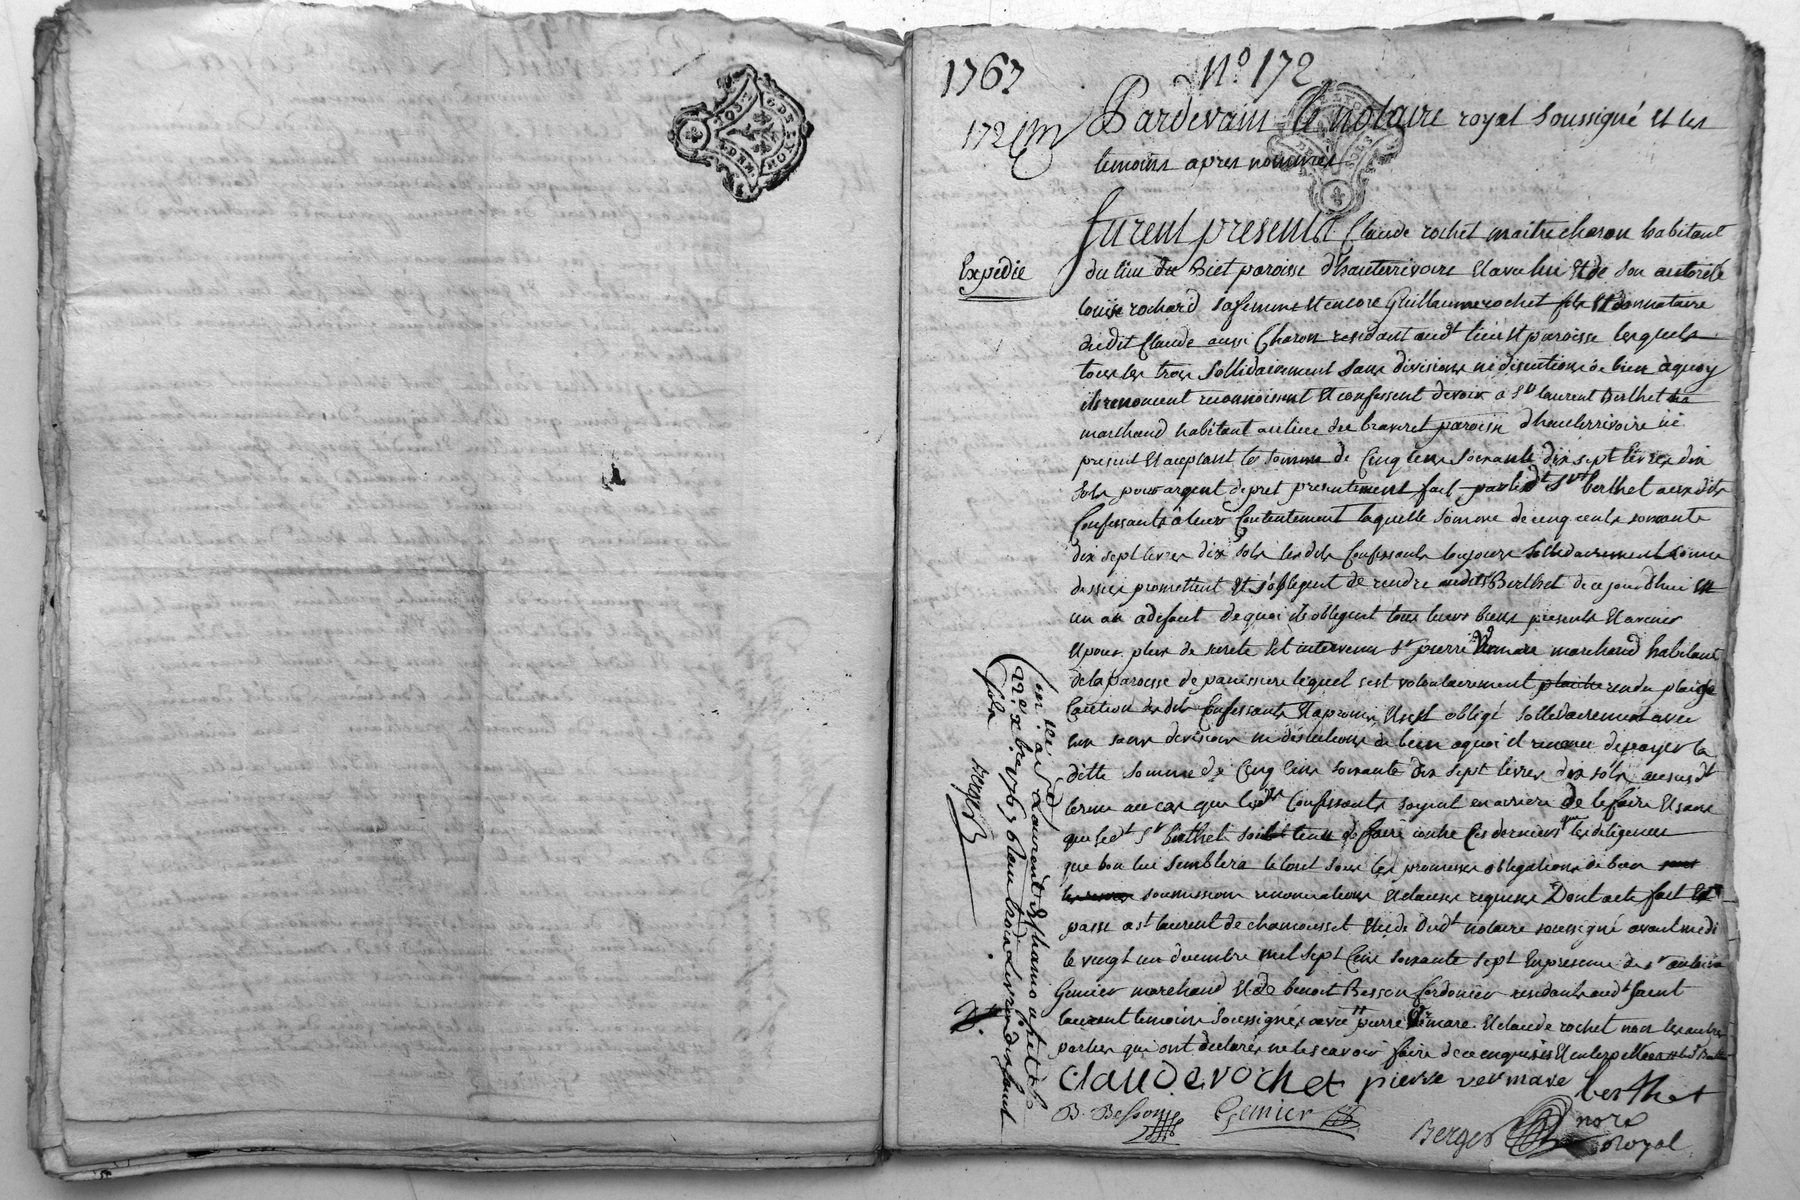 1767
N° 172
172
Pardevant le notaire royal soussigné et les
temoins apres nommés
furent presents Claude rochet maitre charon habitant
Expedié
du lieu du Biet paroisse d'hauterrivoire et avec lui et de son autorité
louise rochard sa femme et encore Guillaume rochet fils et donnataire
dudit Claude aussi Charon residant aud.t lieu et paroisse lesquels
tous les trois sollidairement sans divisions ni discutions de bien aquoy
ils renoncent reconnoissent et confessent devoir a S.r laurent Berthet
marchand habitant au lieu du braveret paroisse d'hauterrivoire ici
present et aceptant la somme de Cinq cens soixante dix sept livres dix
sols pour argent de pret presentement fait par led.t S.r berthet auxdits
Confessants à leur Contentement laquelle somme de cinq cents soixante
dix sept livres dix sols lesdits Confessants toujours sollidairement comme
dessus promettent et s'obligent de rendre audit S.r Berthet de ce jourd'hui en
un an a defaut de quoi ils obligent tous leurs biens presents et avenir
et pour plus de sureté est intervenu S.r pierre Vermare marchand habitant
de la paroisse de panissiere lequel s'est volontairement rendu plaige
Caution desdits Confessants et a promis et s'est obligé sollidairement avec
eux sans division ni discutions de bien aquoi il renonce de payer la
ditte somme de Cinq cens soixante dix sept livres dix sols au susd.t
terme au cas que lesd.ts Confessants soyent en arriere de le faire et sans
que led.t S.r berthet soit tenu de faire contre ces derniers que les diligences
que bon lui semblera le tout sous les promesses obligations de bien
soumissions renonciations et clauses requises Dont acte fait et
passé a st laurent de chamousset etude dud.t notaire soussigné avant midi
le vingt un decembre mil sept Cens soixante sept En presence de s.r antoine
Gemier marchand et de benoit Besson Cordonier residants aud.t saint
laurent temoins soussignes avec pierre Vermare et claude rochet non les autres
parties qui ont declarés ne le scavoir faire de ce enquises et interpellees
claude rochet pierre vermare berthet
B. Besson Gemier
Berger no.re royal
Con.lé a S.t Laurent de chamousset le
22 e x.bre 1767 Reçu trois Livres dix huit
sols
Berger